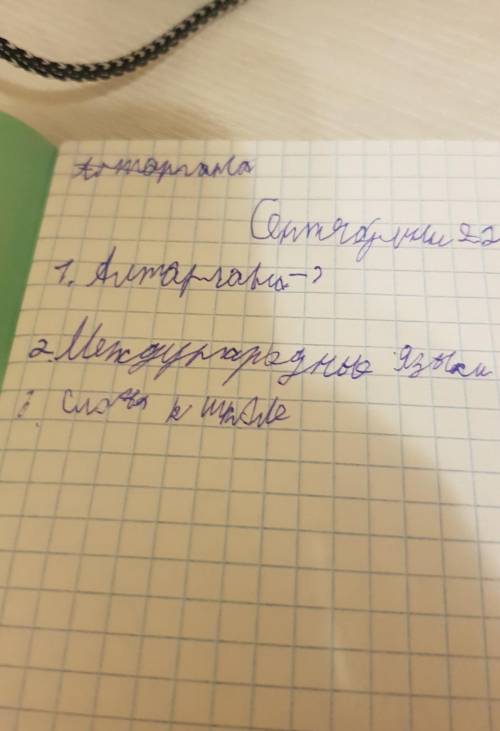 Алтаргана
Сентябрини 22
1. Алтаргана-?
2. Международные языки
слова к школе